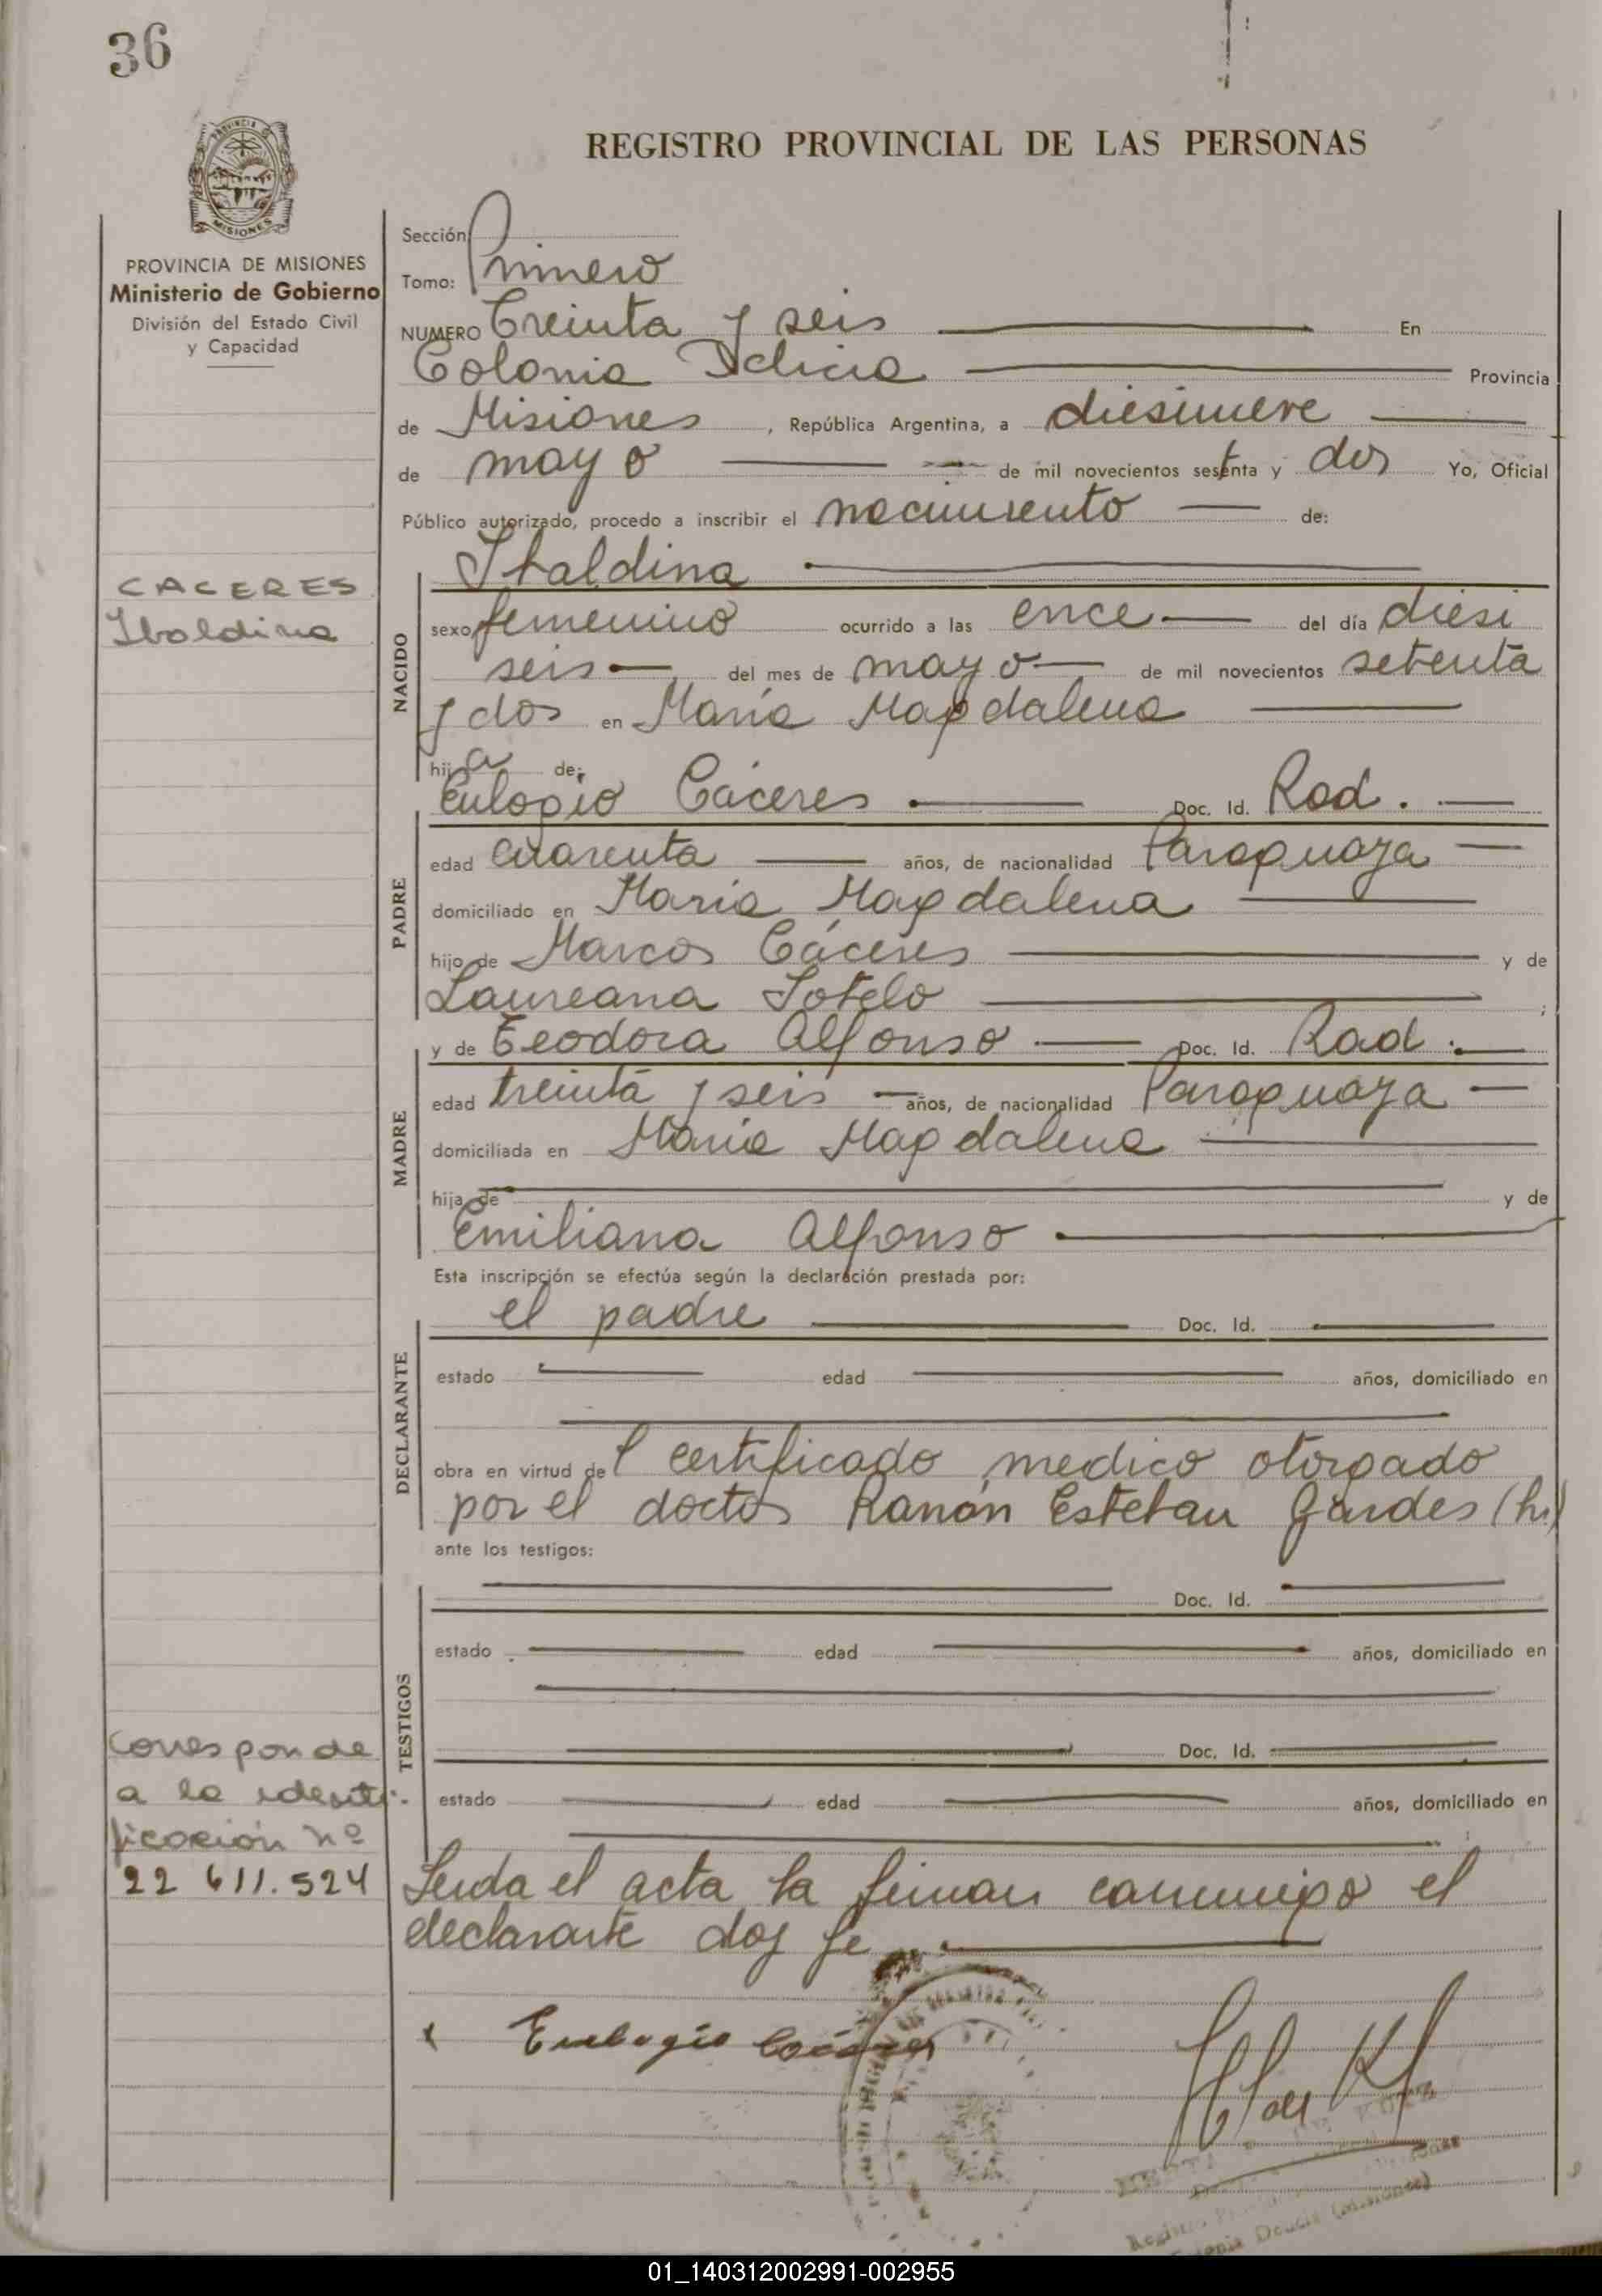 36
REGISTRO PROVINCIAL DE LAS PERSONAS
PROVINCIA DE MISIONES
Ministerio de Gobierno
División del Estado Civil
y Capacidad
MISIONES
Sección
Tomo: Primero
NUMERO Treinta y seis En
Colonia Delicia Provincia
de Misiones , República Argentina, a diesinueve
de mayo de mil novecientos sesenta y dos Yo, Oficial
Público autorizado, procedo a inscribir el nacimiento de:
CACERES
Ibaldina
NACIDO
Ibaldina
sexo femenino ocurrido a las once del día diesi
seis del mes de mayo de mil novecientos setenta
y dos en María Magdalena
hija de:
PADRE
Eulogio Cáceres Doc. Id. Rad.
edad cuarenta años, de nacionalidad Paraguaya
domiciliado en María Magdalena
hijo de Marcos Cáceres y de
Laureana Sotelo ;
MADRE
y de Teodora Alfonso Doc. Id. Rad.
edad treinta y seis años, de nacionalidad Paraguaya
domiciliada en María Magdalena
hija de y de
Emiliana Alfonso
Esta inscripción se efectúa según la declaración prestada por:
DECLARANTE
el padre Doc. Id.
estado edad años, domiciliado en
obra en virtud del certificado medico otorgado
por el doctor Ramón Esteban (h.)
ante los testigos:
TESTIGOS
Doc. Id.
estado edad años, domiciliado en
Doc. Id.
estado edad años, domiciliado en
Corresponde
a la identi-
ficación nº
22 611.524
Leida el acta la firman conmigo el
declarante doy fe
x Eulogio Cáceres
(Misiones)
01_140312002991-002955